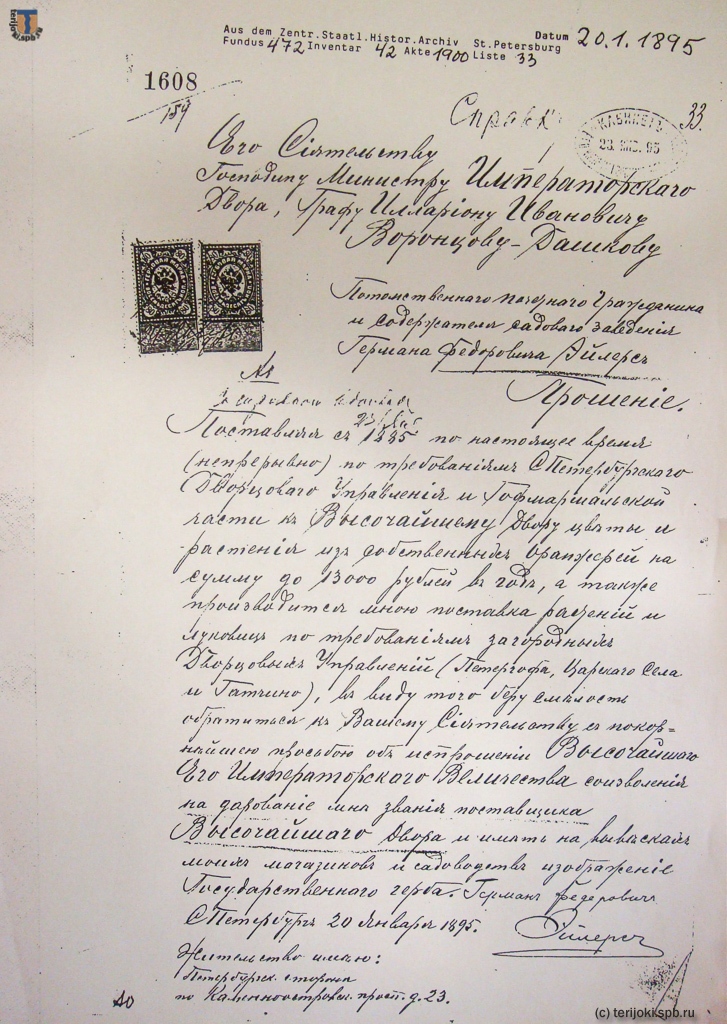 terijoki.spb.ru
Aus dem Zentr.Staatl.Histor.Archiv St.Petersburg Datum 20.1.1895
Fundus 472 Inventar 42 Akte 1900 Liste 33
1608
159
Справк
33.
КАБИНЕТЪ
95
Его Сіятельству
Господину Министру Императорскаго
Двора, Графу Илларіону Ивановичу
Воронцову-Дашкову
Потомственнаго почетнаго Гражданина
и содержателя садоваго заведенія
Германа Федоровича Эйлерсъ
Прошеніе.
Поставляя съ 1885 по настоящее время
(непрерывно) по требованіямъ С Петербургскаго
Дворцоваго Управленія и Гофмаршальской
части къ Высочайшему Двору цвѣты и
растенія изъ собственныхъ оранжерей на
сумму до 13000 рублей въ годъ, а также
производится мною поставка растеній и
луковицъ по требованіямъ загородныхъ
Дворцовыхъ Управленій (Петергофа, Царскаго Села
и Гатчино), въ виду того беру смѣлость
обратиться къ Вашему Сіятельству съ покор=
нѣйшею просьбою объ испрошеніи Высочайшаго
Его Императорскаго Величества соизволенія
на дарованіе мнѣ званія поставщика
Высочайшаго Двора и имѣть на вывѣскахъ
моихъ магазиновъ и садоводствъ изображеніе
Государственнаго герба. Германъ Федоровичъ
С Петербургъ 20 Января 1895. Эйлерсъ
Жительство имѣю:
Петербургск. сторона
по Каменноостровск. просп. д. 23.
(c) terijoki.spb.ru